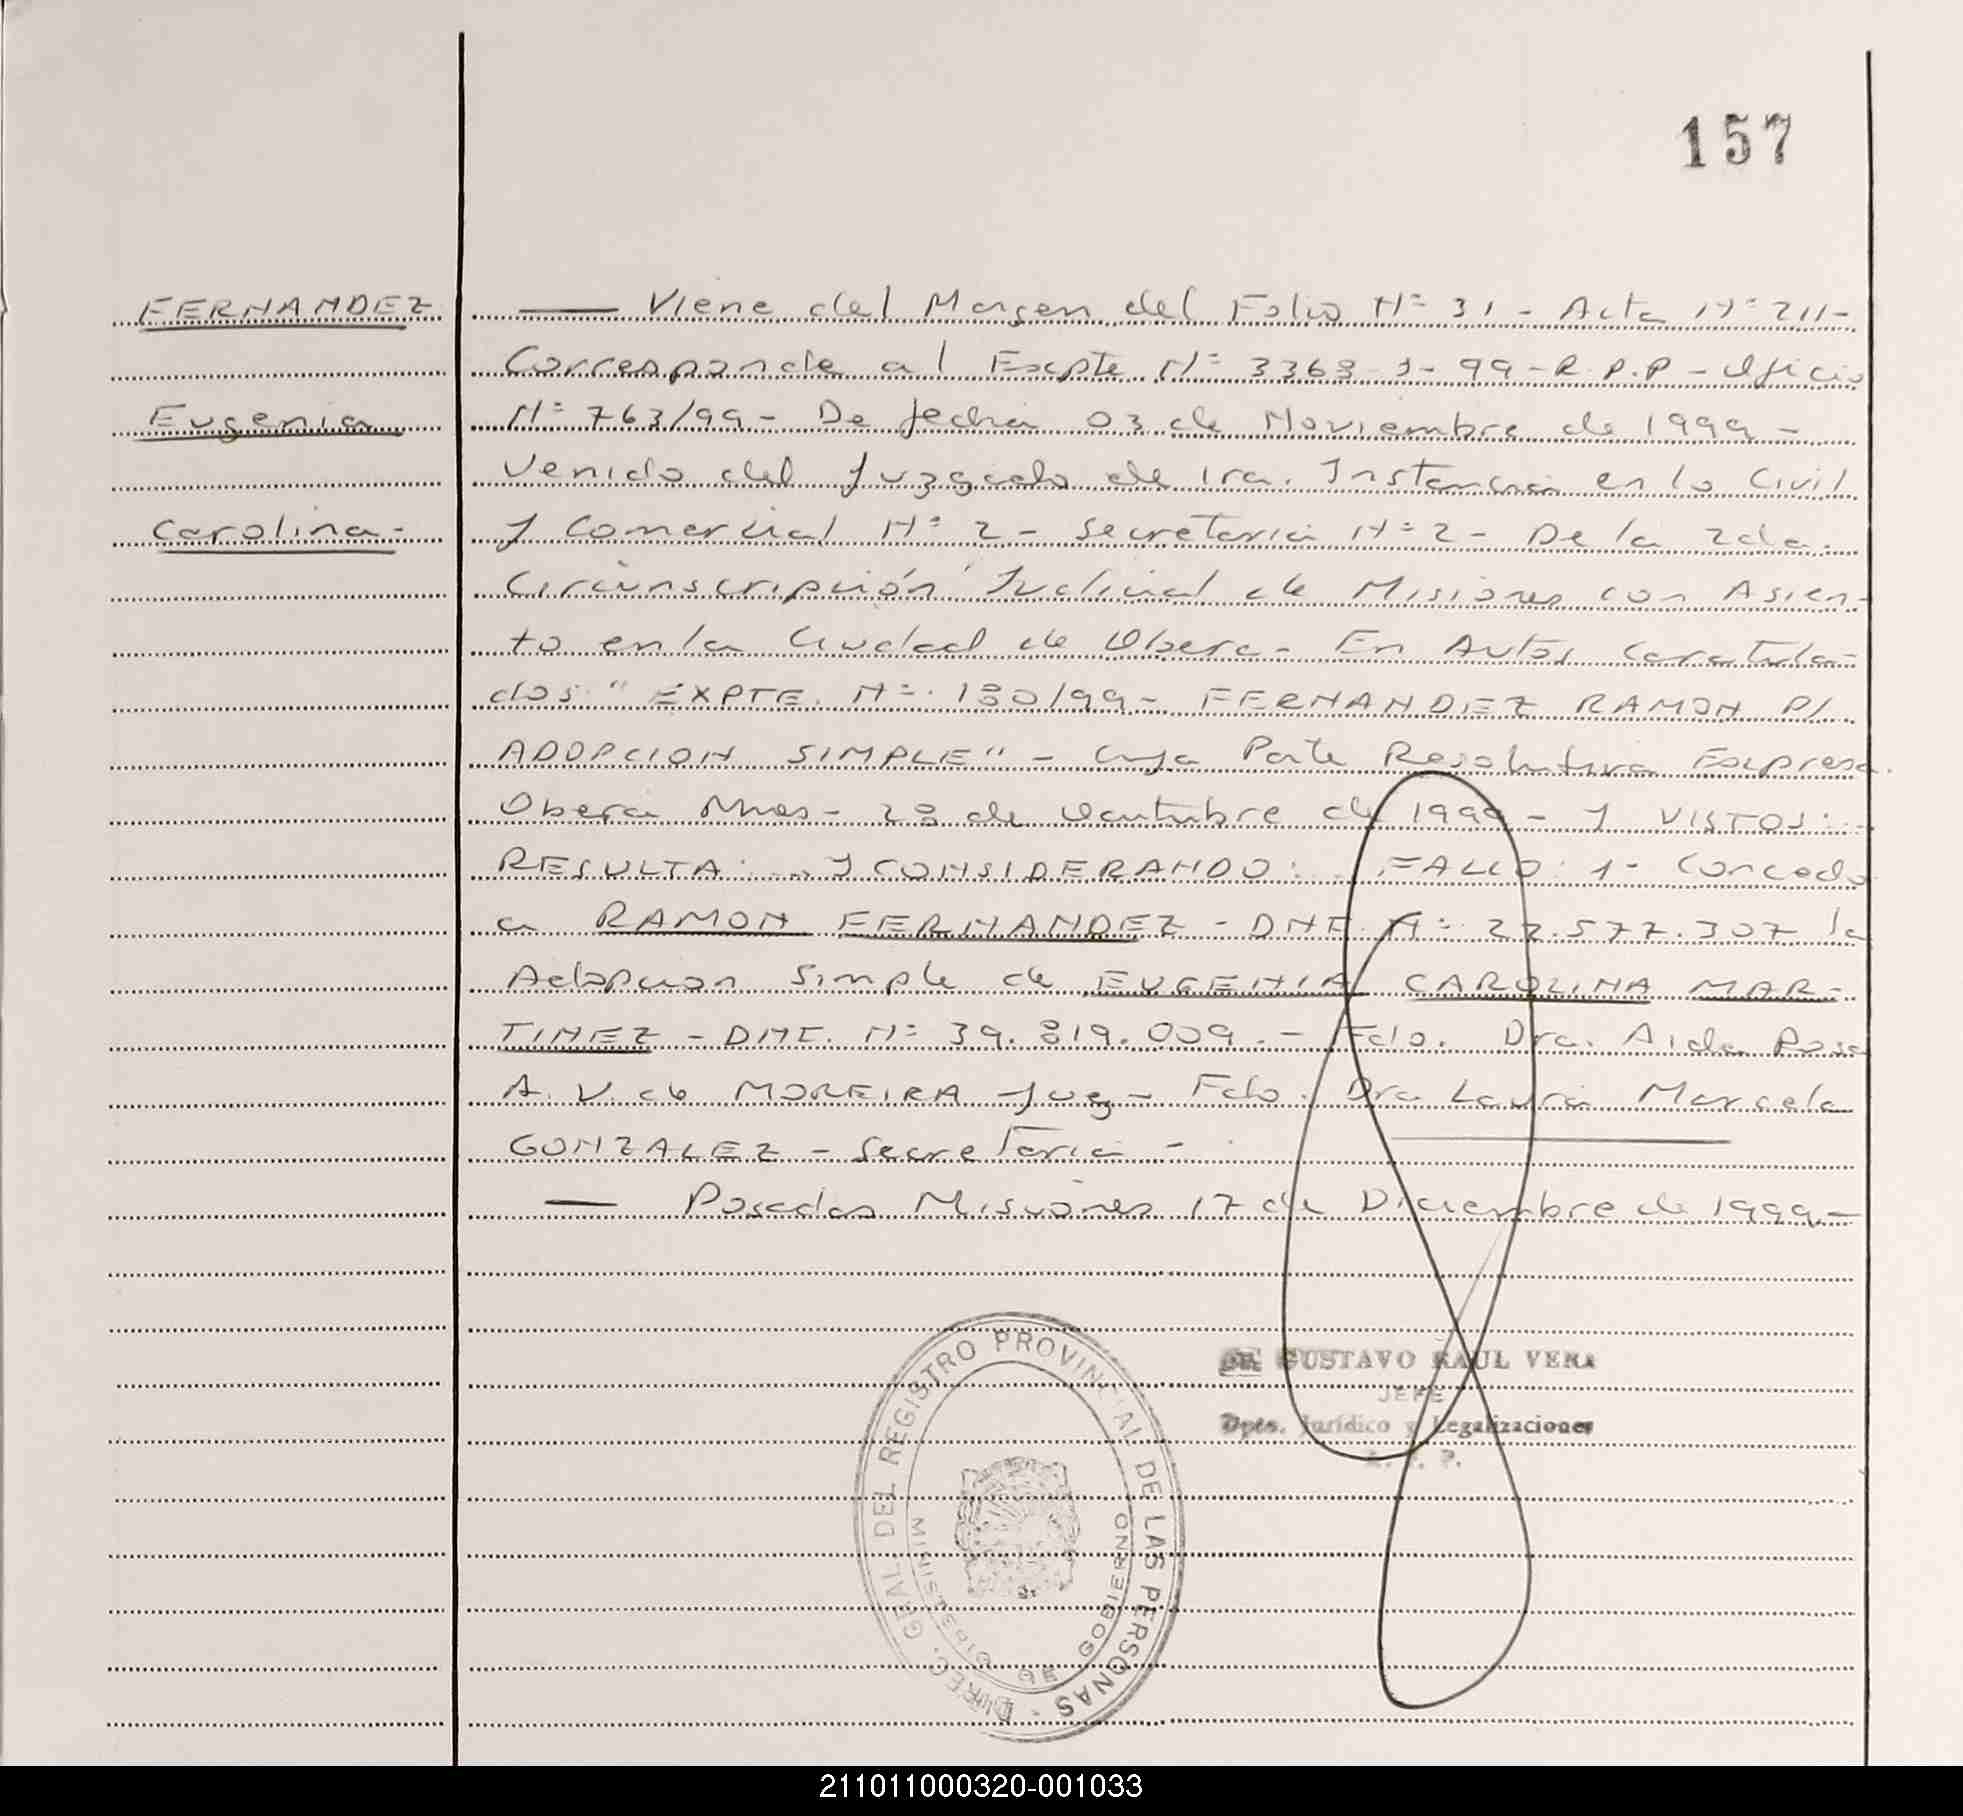 157
FERNANDEZ
Eugenia
Carolina-
— Viene del Margen del Folio Nº 31 - Acta Nº 211-
Corresponde al Expte Nº 3368-J-99-R.P.P - Oficio
Nº 763/99 - De fecha 03 de Noviembre de 1999 -
venido del Juzgado de 1ra. Instancia en lo Civil
y Comercial Nº 2 - Secretaria Nº 2 - De la 2da.
Circunscripción Judicial de Misiones con Asien-
to en la Ciudad de Obera - En Autos Caratula-
dos "EXPTE. Nº 180/99 - FERNANDEZ RAMON P/
ADOPCION SIMPLE" - Cuya Parte Resolutiva Expresa.
Obera Mnes - 28 de Octubre de 1999 - Y VISTOS:..
RESULTA:... Y CONSIDERANDO:.. FALLO: 1- Concedo
a RAMON FERNANDEZ - DNI. Nº 22.577.307 la
Adopcion Simple de EUGENIA CAROLINA MAR-
TINEZ - DNI. Nº 39.819.009. - Fdo. Dra. Aida Rosa
A. V. de MOREIRA Juez - Fdo. Dra Laura Marcela
GONZALEZ - Secretaria -
— Posadas Misiones 17 de Diciembre de 1999.-
GUSTAVO RAUL VERA
JEFE
Dpto. Jurídico y Legalizaciones
R. P. P.
DIREC. GRAL DEL REGISTRO PROVINCIAL DE LAS PERSONAS -
MINISTERIO DE GOBIERNO
211011000320-001033